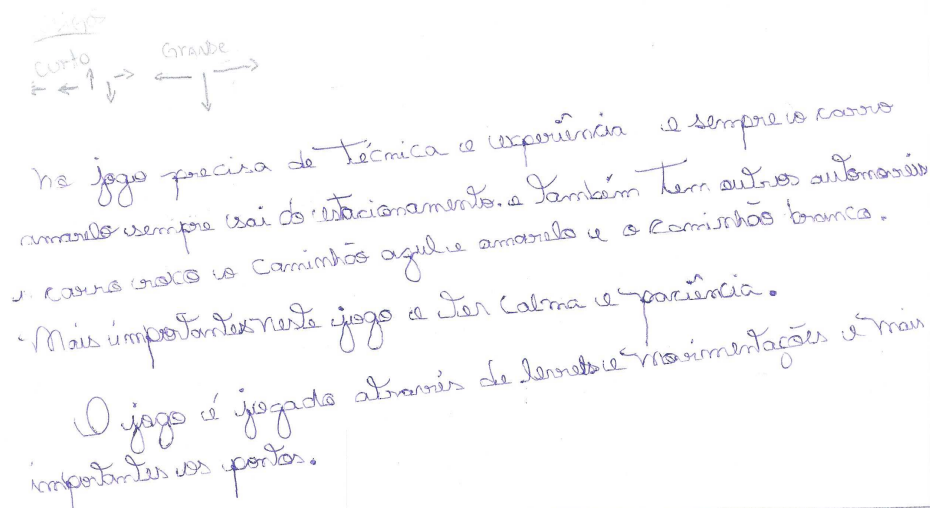 Curto Grande
no jogo precisa de Técnica e experiência e sempre o carro
amarelo sempre sai do estacionamento. e também tem outros automoveis
carro roxo o caminhão azul e amarelo e o caminhão branco.
Mais importantes neste jogo e ter calma e paciência.
O jogo é jogado através de e movimentações e mais
importantes os pontos.